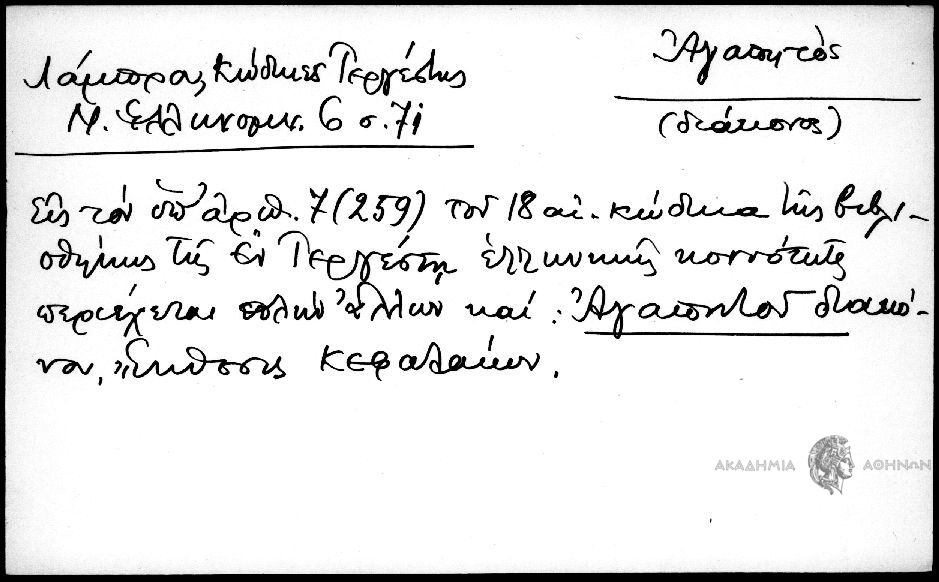 Λάμπρος, Κώδικες Τεργέστης
Ν. Ἑλληνομν. 6 σ. 71
Ἀγαπητὸς
(διάκονος)
Εἰς τὸν ὑπ' ἀριθ. 7 (259) τοῦ 18 αἰ. κώδικα τῆς βιβλι-
οθήκης τῆς ἐν Τεργέστῃ ἑλληνικῆς κοινότητος
περιέχεται πλὴν ἄλλων καί: Ἀγαπητοῦ διακό-
νου, "Ἔκθεσις κεφαλαίων.
ΑΚΑΔΗΜΙΑ ΑΘΗΝΩΝ